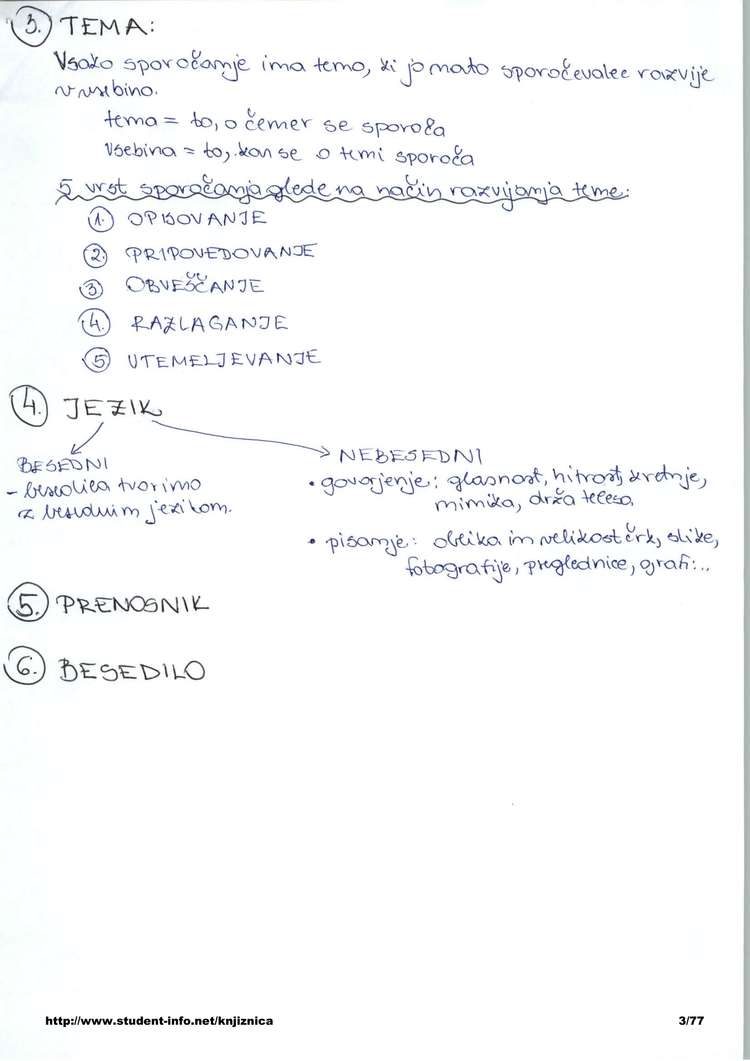 3. TEMA:
Vsako sporočanje ima temo, ki jo nato sporočevalec razvije
v vsebino.
tema = to, o čemer se sporoča
Vsebina = to, kar se o temi sporoča
5 vrst sporočanja glede na način razvijanja teme:
1. OPISOVANJE
2. PRIPOVEDOVANJE
3 OBVEŠČANJE
4. RAZLAGANJE
5 UTEMELJEVANJE
4. JEZIK
BESEDNI
- besedila tvorimo
z besednim jezikom.
NEBESEDNI
• govorjenje: glasnost, hitrost, kretnje,
mimika, drža telesa,
• pisanje: oblika in velikost črk, slike,
fotografije, preglednice, grafi...
5. PRENOSNIK
6. BESEDILO
http://www.student-info.net/knjiznica
3/77